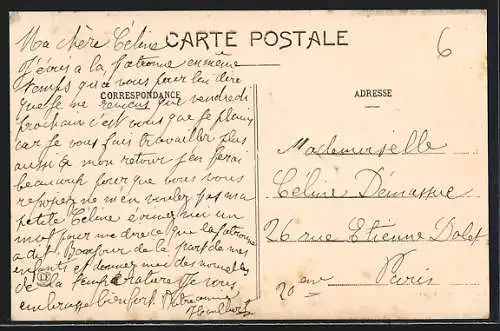 Ma chère Céline
CARTE POSTALE
6
J'écris a la patronne en même
temps qu'a vous pour lui dire
CORRESPONDANCE
ADRESSE
que je ne reviens que vendredi
prochain c'est vous que je plains
car je vous fais travailler plus
aussi a mon retour j'en ferai
beaucoup pour que vous vous
reposiez ne m'en voulez pas ma
petite Céline écrivez moi un
mot pour me dire ce que la patronne
a dit. Bonjour de la part de mes
enfants et donnez moi des nouvelles
de la température Je vous
embrasse bien fort
Mademoiselle
Céline Démasque
26 rue Etienne Dolet
Paris
20 eme